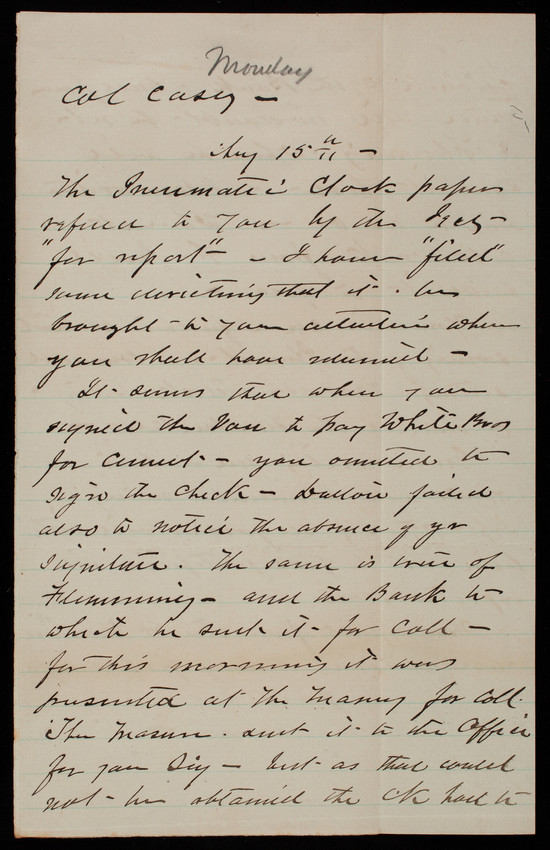 Monday
Col Casey —
Aug 15th —
The Pneumatic Clock papers
referred to you by the Secty —
"for report" — I have "filed"
same directing that it be
brought to your attention when
you shall have returned —
It seems that when you
signed the Vou to pay White Bros
for cement — you omitted to
sign the check — Dalton failed
also to notice the absence of yr
signature. The same is true of
Flemming — and the Bank to
which he sent it for Coll —
for this morning it was
presented at the Treasury for Coll.
The Treasurer sent it to the Office
for your Sig — but as that could
not be obtained the Ck had to